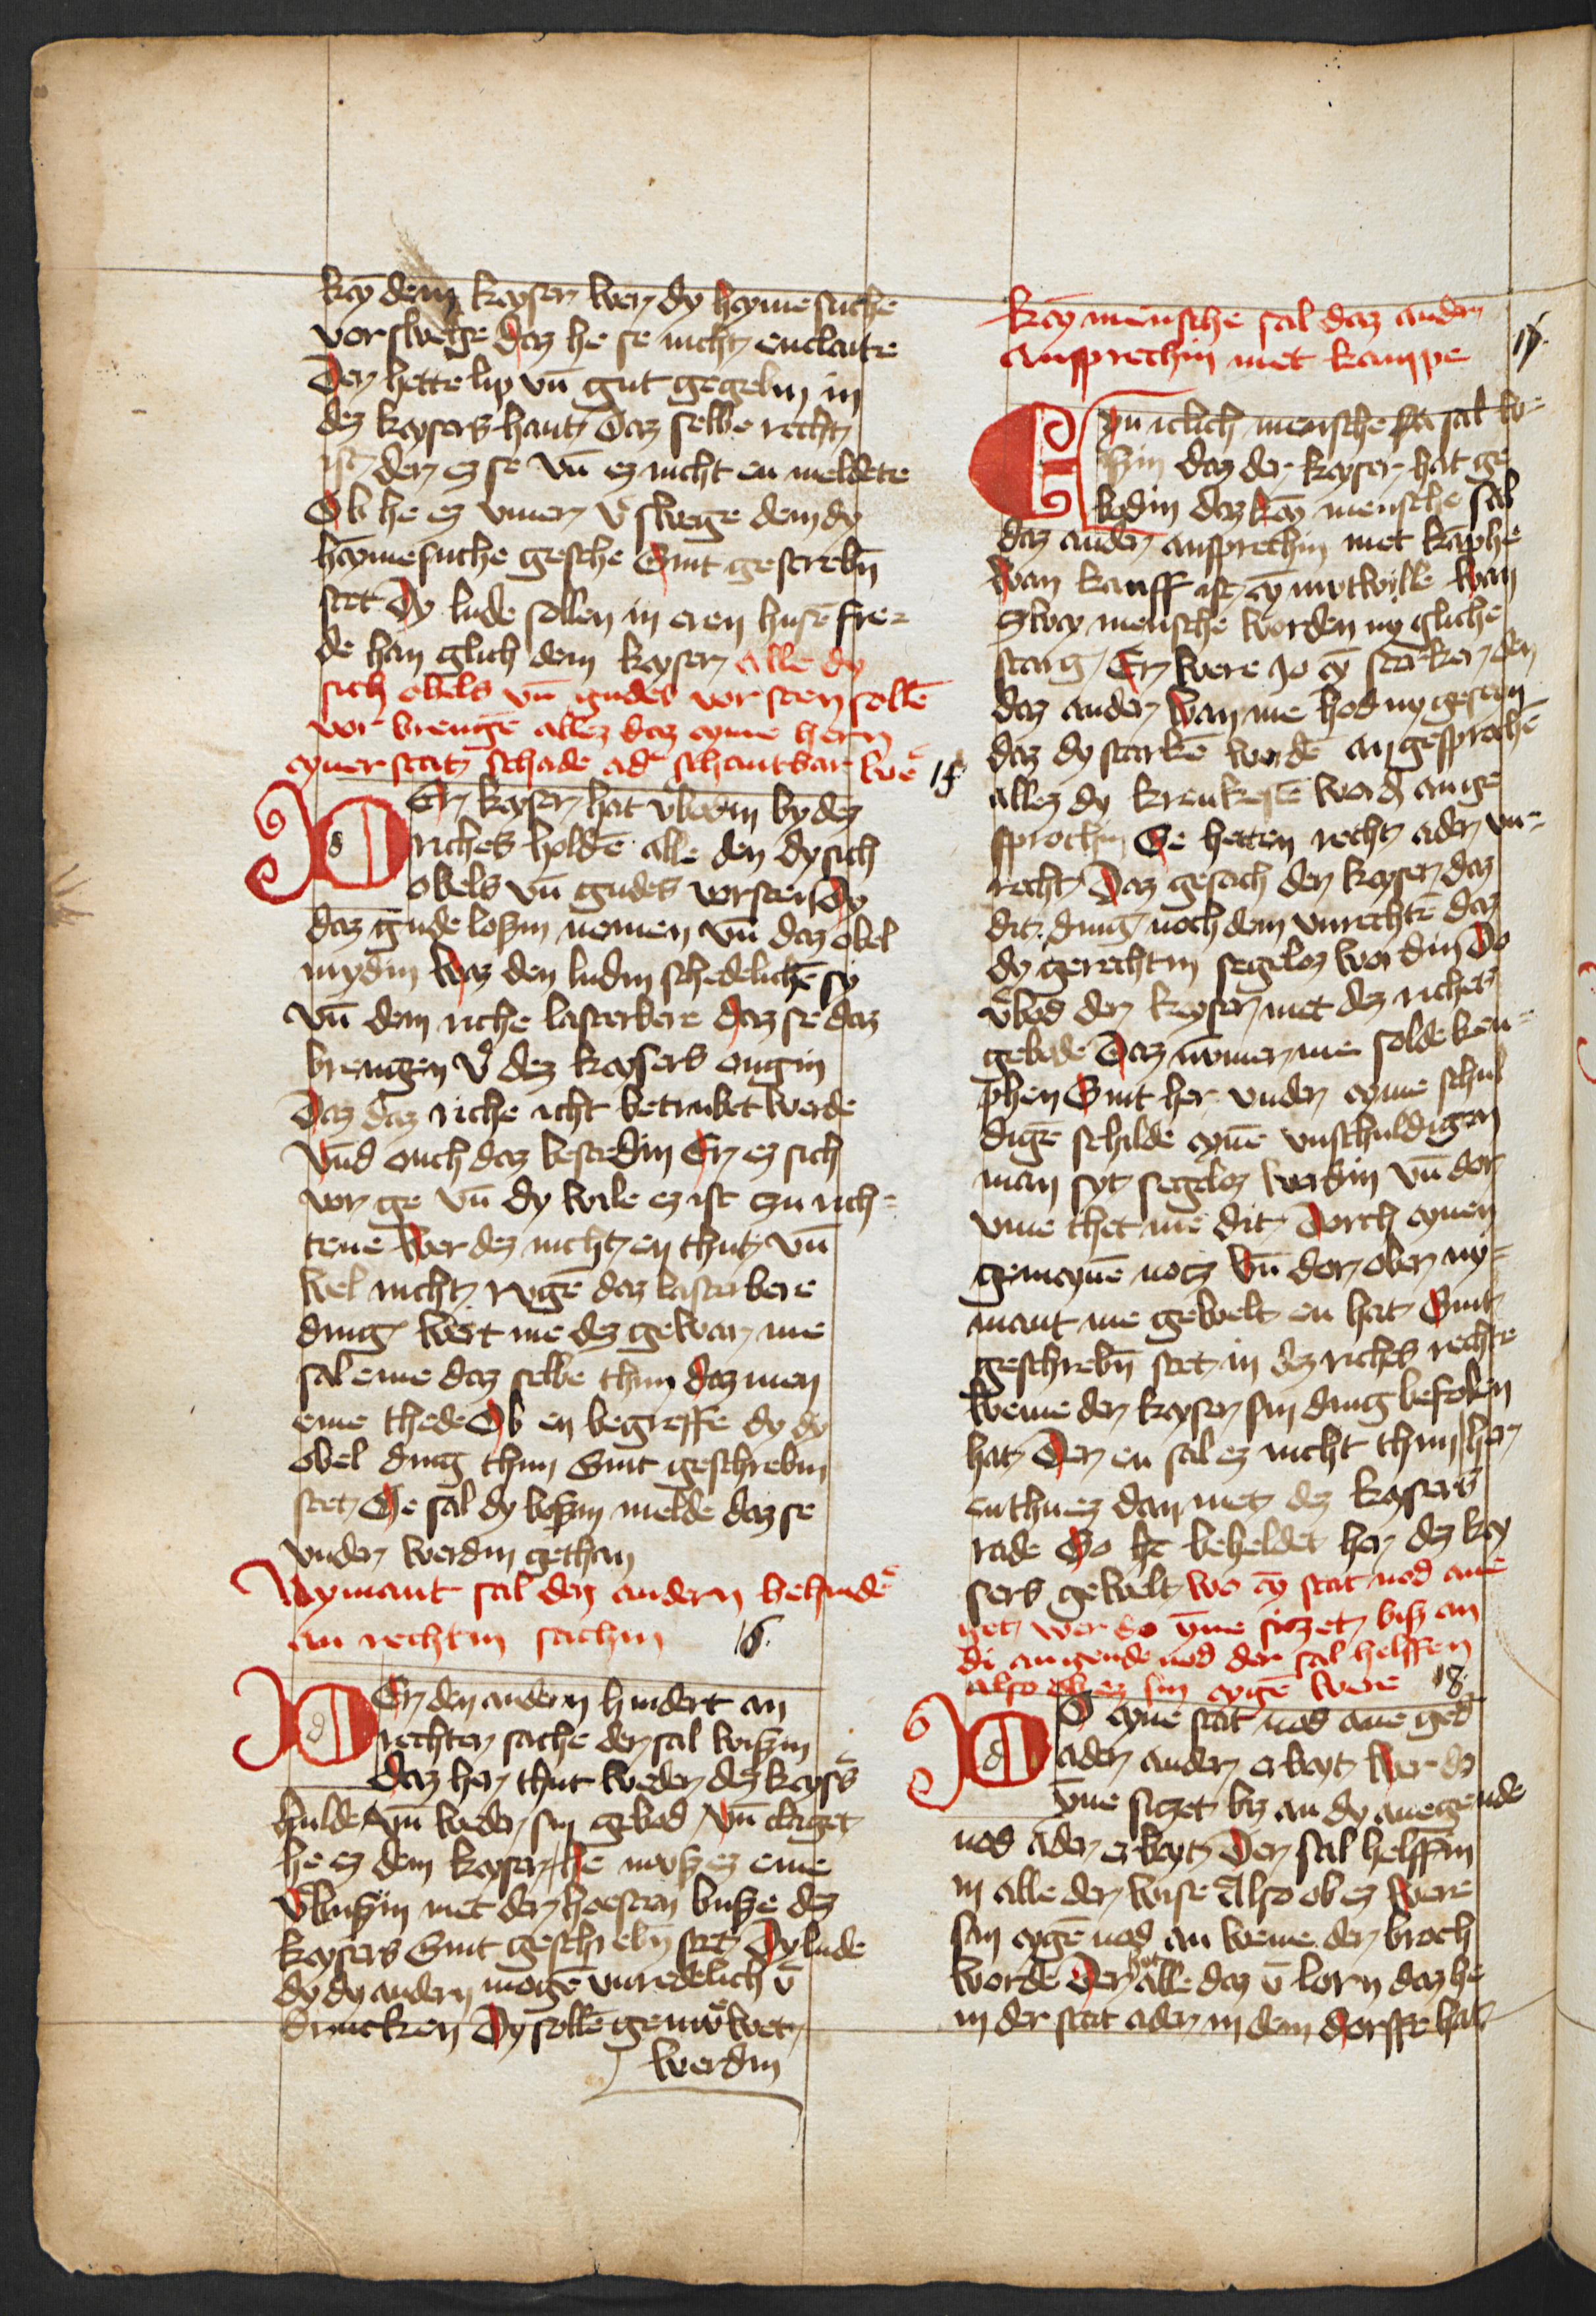 key dem keyser wer dy heymesuche
vorswege daz he se nicht enclaite
Der hette lip vn̄ gut gegebin in
dez keysers hant Daz selbe recht
ist der ez se vn̄ ez nicht en meldete
Ob he ez vmer v͛swege dem dy
heymesuche geschee Sint gescrebn̄
stet Dy lude sollen in eren husē fre-
de han glich dem keyser alle dy
sich obels vn̄ gudes vor sten sollē
vor brengē allez daz eyme hern
eyner stat schade ad͛ schantbar we͛ 15
Er keyser hat v͛bodin by dez
riches holdē alle den dy sich
obels vn̄ gudes vorsten Dy
daz gude loszin nemen vn̄ daz obel
mydin waz den ludin schedelichē sy
vn̄ dem riche lasterbere daz se daz
brengen v͛ dez keysers ougin
Daz daz riche icht betrubet werde
vnd ouch daz bestedin Er ez sich
vor ge vn̄ dy wile ez ist czu rich-
tene Wer dez nicht en thut vn̄
wel nicht rugē daz lasterbere
ding wert me dez gewar me
sal eme daz selbe thun daz men
eme thede Ob en begreffe dy dy
obel ding thun Sint geschrebin
stet Me sal dy boszin melde daz se
vnder werdin gethan
Nymant sal den andern behinde͛
an rechtin sachin 16
d Er den andern hindert an
rechter sache der sal wiszin
daz her thut weder dez keys͛s
hulde vn̄ weder sin gebod vn̄ claget
he ez dem keyser he musz ez eme
v͛buszin met der hoesten busze dez
keysers Sint geschrebn̄ stet Dy lude
dy dy andern mogē vnredelich v͛
drucken Dy sollē genud͛ wet
werdin
key mensche sal daz ander
ansprechin met kampe 17.
Eyn iclich mensche sal wi-
szin daz der keyser hat ge
bodin daz key mensche sal
daz ander ansprechin met kāphe
wan kamff ist ey mutwille wan
zwey mensche worden ny gliche
starg Er were jo ey sterker den
daz ander Wan me hod ny gesen
daz dy starkē wordē an gesprochē
allez dy krenkestē word͛ an ge
sprochin Se hetten recht ader vn-
recht Daz gesach der keyser daz
dit ding noch dem vnrechtē daz
dy gerechtin segeloz wordin Do
v͛bod der keyser met dez riches
gebode Daz nv̄mer me solde kem-
phen Sint her vnder eyme schul
digē schilde eynē vnschuldigen
man syt segeloz werdin vn̄ dor
vme thet me dit Dorch eynen
gemeynē notz vn̄ dor ober ny-
mant me gewelt en hat Sint
geschrebn̄ stet in dez riches rechte
weme der keyser sin ding befolen
hat Der en sal ez nicht thun her
enthu ez dan met dez keysers
rade So he beheldet her dez key
sers gewelt wo ey stat nod ane
get wer do ynne siczet bisz an
di angende nod der sal helffen
also ob ez sin eygē were 18.
d O eyne stat nod ane ged
ader ander erbeyt wer do
ynne siczet biz an dy anegende
nod ader erbeyt Der sal helffin
in alle der wise Also ob ez were
sin eygē nod an weme der broch
worde Der hat alle daz v͛lorn daz he
in der stat ader in dem dorffe hat